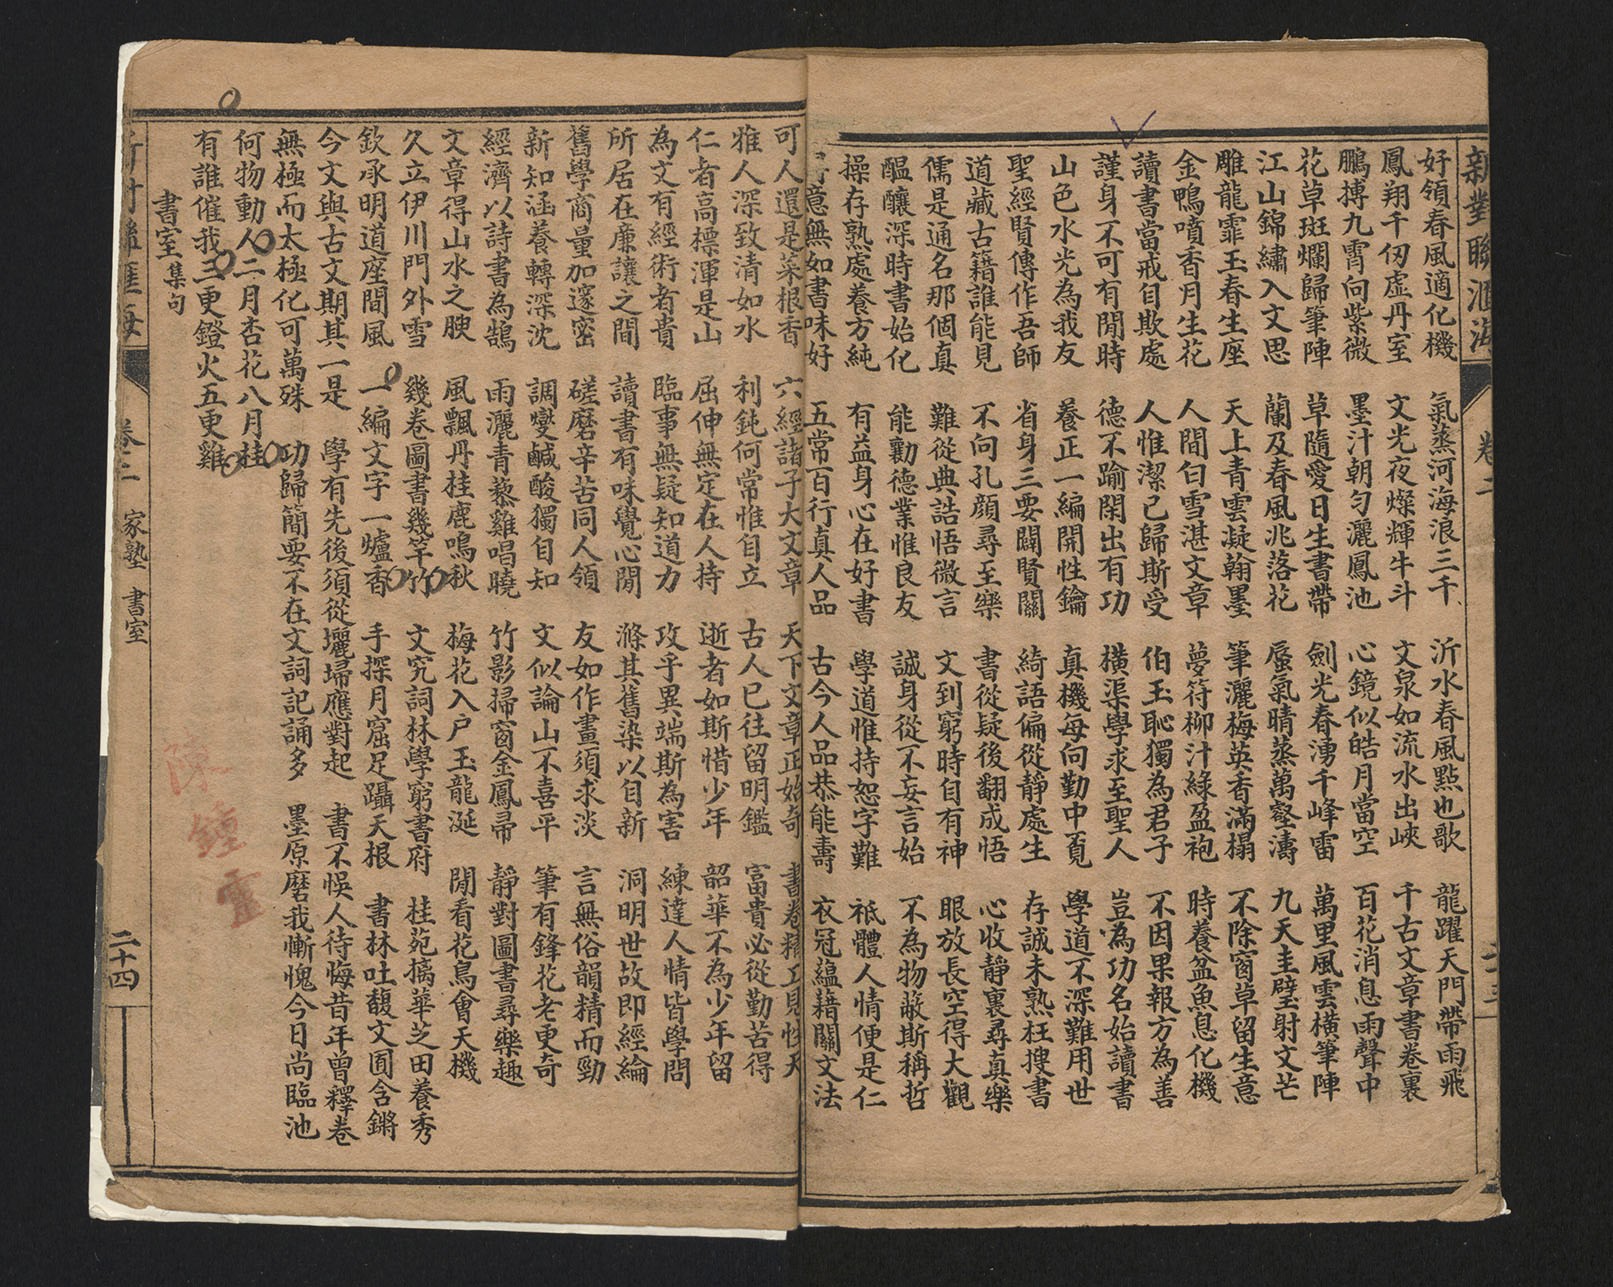 新對聯滙海
卷二
好領春風適化機 氣蒸河海浪三千 沂水春風點也歌 龍躍天門帶雨飛
鳳翔千仞虛丹室 文光夜燦輝牛斗 文泉如流水出峽 千古文章書卷裏
鵬搏九霄向紫微 墨汁朝勻灑鳳池 心鏡似皓月當空 百花消息雨聲中
花草斑斕歸筆陣 草隨愛日生書帶 劍光春湧千峰雷 萬里風雲橫筆陣
江山錦繡入文思 蘭及春風兆落花 蜃氣晴蒸萬壑濤 九天圭璧射文芒
雕龍霏玉春生座 天上青雲凝翰墨 筆灑梅英香滿榻 不除窗草留生意
金鴨噴香月生花 人間白雪湛文章 夢符柳汁綠盈袍 時養盆魚息化機
讀書當戒自欺處 人惟潔己歸斯受 伯玉恥獨為君子 不因果報方為善
謹身不可有閒時 德不踰閑出有功 橫渠學求至聖人 豈為功名始讀書
山色水光為我友 養正一編開性鑰 真機每向勤中覓 學道不深難用世
聖經賢傳作吾師 省身三要闢賢關 綺語偏從靜處生 存誠未熟枉搜書
道藏古籍誰能見 不向孔顏尋至樂 書從疑後翻成悟 心收靜裏尋真樂
儒是通名那個真 難從典誥悟微言 文到窮時自有神 眼放長空得大觀
醞釀深時書始化 能勸德業惟良友 誠身從不妄言始 不為物蔽斯稱哲
操存熟處養方純 有益身心在好書 學道惟持恕字難 祗體人情便是仁
意無如書味好 五常百行真人品 古今人品恭能壽 衣冠蘊藉關文法
可人還是菜根香 六經諸子大文章 天下文章正始奇 書卷精工見性天
雅人深致清如水 利鈍何常惟自立 古人已往留明鑑 富貴必從勤苦得
仁者高標渾是山 屈伸無定在人持 逝者如斯惜少年 韶華不為少年留
為文有經術者貴 臨事無疑知道力 攻乎異端斯為害 練達人情皆學問
所居在廉讓之間 讀書有味覺心閒 滌其舊染以自新 洞明世故即經綸
舊學商量加邃密 磋磨辛苦同人領 友如作畫須求淡 言無俗韻精而勁
新知涵養轉深沈 調燮鹹酸獨自知 文似論山不喜平 筆有鋒花老更奇
經濟以詩書為鵠 雨灑青藜雞唱曉 竹影掃窗金鳳帚 靜對圖書尋樂趣
文章得山水之腴 風飄丹桂鹿鳴秋 梅花入戶玉龍涎 閒看花鳥會天機
久立伊川門外雪 幾卷圖書幾竿竹 文究詞林學窮書府 桂苑摛華芝田養秀
欽承明道座間風 一編文字一爐香 手探月窟足躡天根 書林吐馥文囿含鏘
今文與古文期其一是 學有先後須從灑埽應對起 書不悞人待悔昔年曾釋卷
無極而太極化可萬殊 功歸簡要不在文詞記誦多 墨原磨我慚愧今日尚臨池
何物動人二月杏花八月桂
有誰催我三更鐙火五更雞
書室集句
卷二 家塾 書室 二十四
陳鍾靈